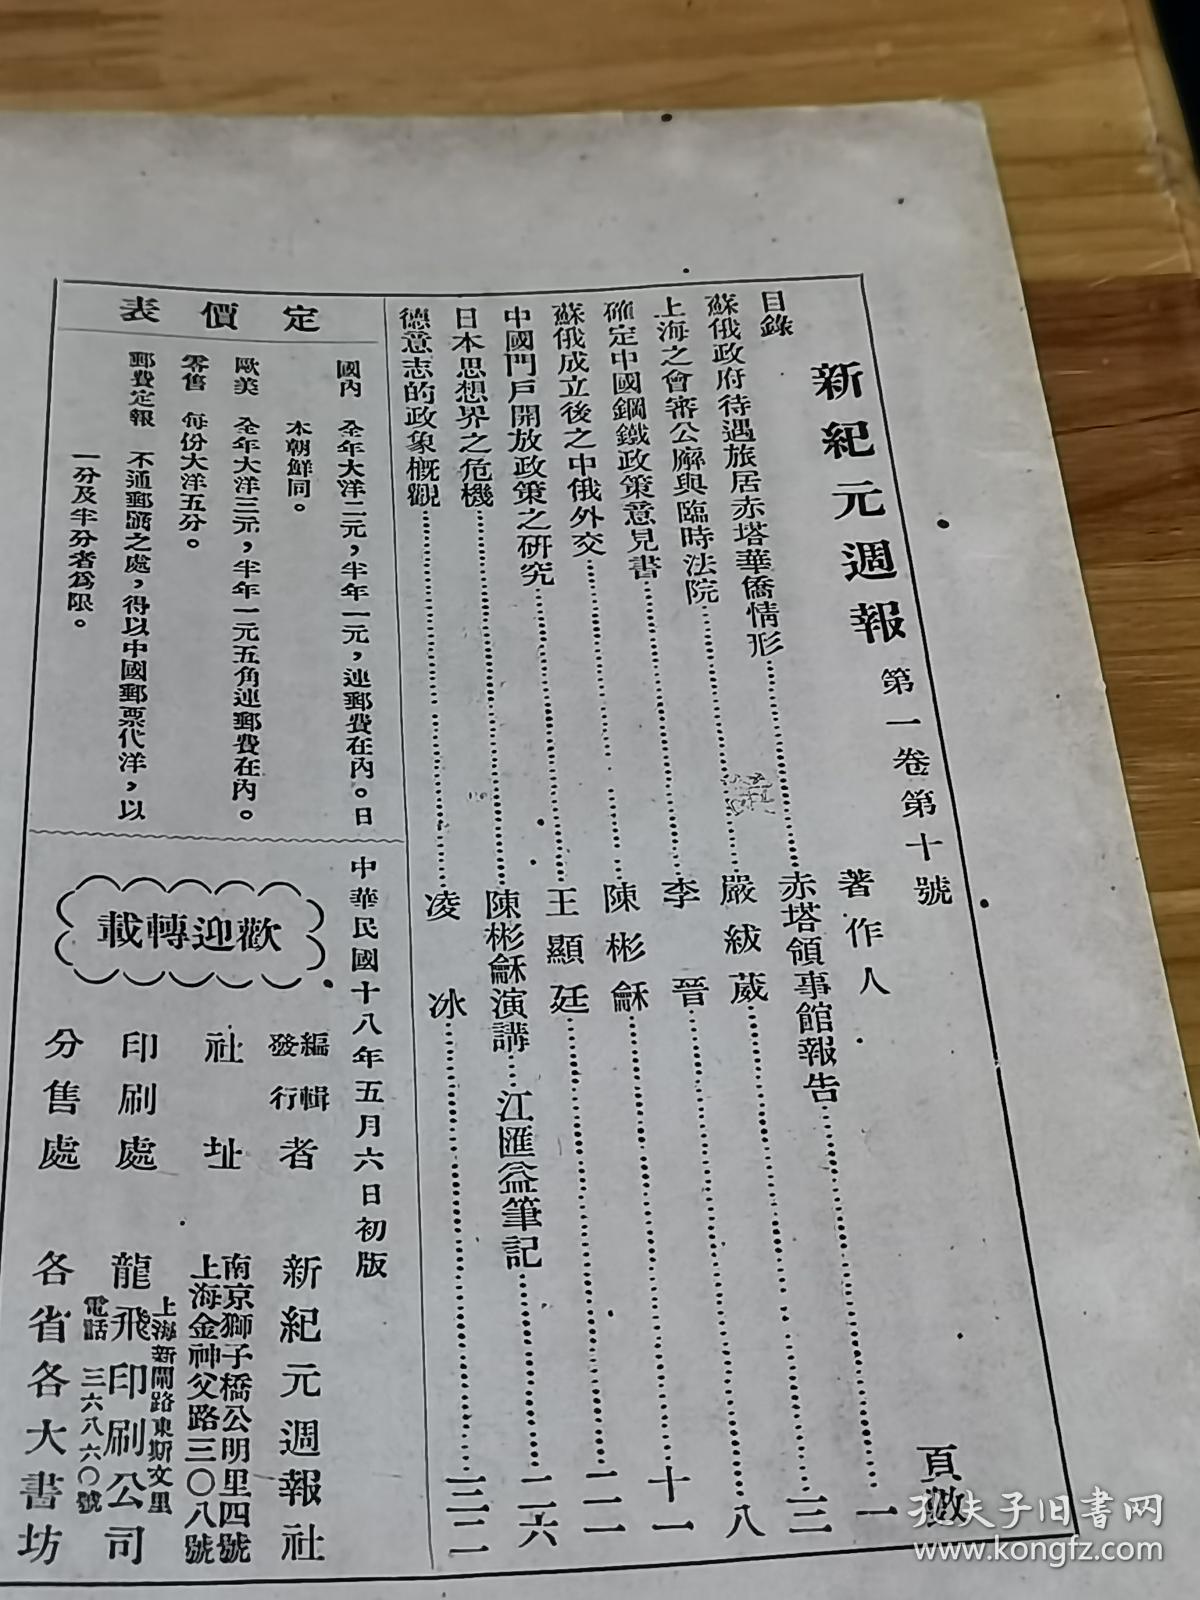 新紀元週報 第一卷第十號
目錄 著作人 頁數
蘇俄政府待遇旅居赤塔華僑情形 赤塔領事館報告 一
上海之會審公廨與臨時法院 嚴紱葳 三
確定中國鋼鐵政策意見書 李晉 八
蘇俄成立後之中俄外交 陳彬龢 十一
中國門戶開放政策之研究 王顯廷 二一
日本思想界之危機 陳彬龢演講 江匯益筆記 二六
德意志的政象概觀 凌冰 三二
定價表
國內 全年大洋二元,半年一元,連郵費在內。日
本朝鮮同。
歐美 全年大洋三元,半年一元五角連郵費在內。
零售 每份大洋五分。
郵費定報 不通郵匯之處,得以中國郵票代洋,以
一分及半分者為限。
中華民國十八年五月六日初版
歡迎轉載
編輯發行者 新紀元週報社
社址 南京獅子橋公明里四號
上海金神父路三〇八號
印刷處 龍飛印刷公司
上海新閘路東斯文里
電話 三六八六〇號
分售處 各省各大書坊
孔夫子旧书网
www.kongfz.com